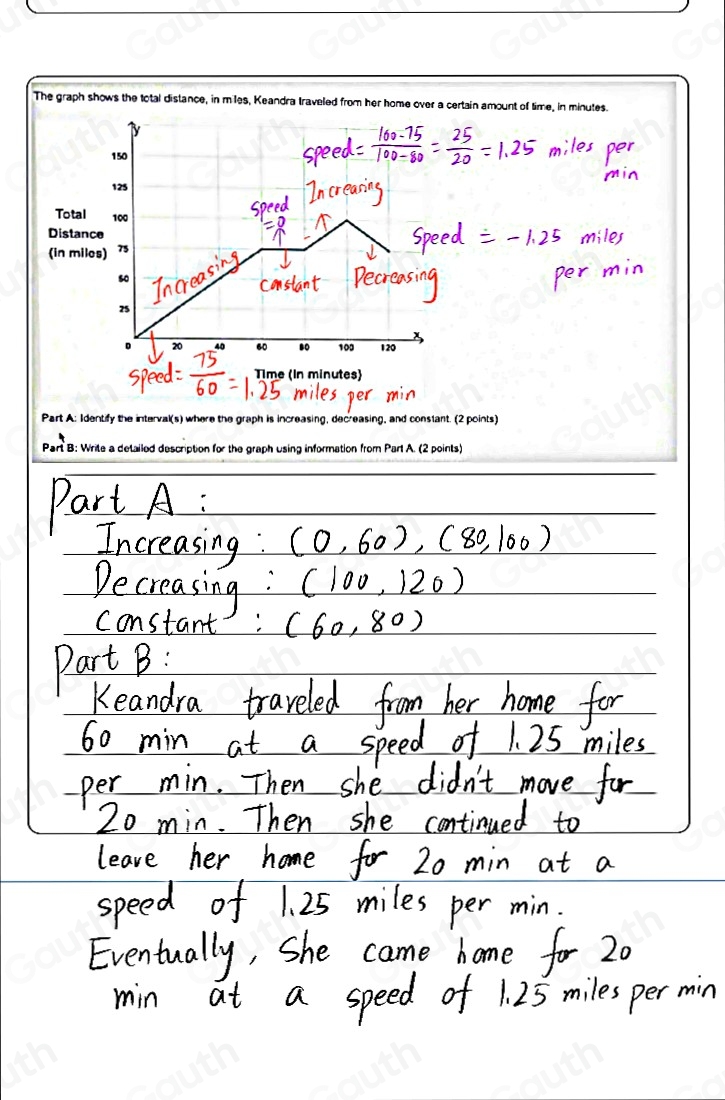 The graph shows the total distance, in miles, Keandra traveled from her home over a certain amount of time, in minutes.
y
speed = 100-75/100-80 = 25/20 = 1.25 miles per min
150
125
Increasing
speed = 0
Total Distance (in miles)
100
75
50
25
0
speed = -1.25 miles per min
Increasing
constant
Decreasing
20 40 60 80 100 120
x
Time (in minutes)
speed = 75/60 = 1.25 miles per min
Part A: Identify the interval(s) where the graph is increasing, decreasing, and constant. (2 points)
Part B: Write a detailed description for the graph using information from Part A. (2 points)
Part A :
Increasing : (0, 60), (80, 100)
Decreasing : (100, 120)
Constant : (60, 80)
Part B :
Keandra traveled from her home for
60 min at a speed of 1.25 miles
per min. Then she didn't move for
20 min. Then she continued to
leave her home for 20 min at a
speed of 1.25 miles per min.
Eventually, She came home for 20
min at a speed of 1.25 miles per min
Gauth